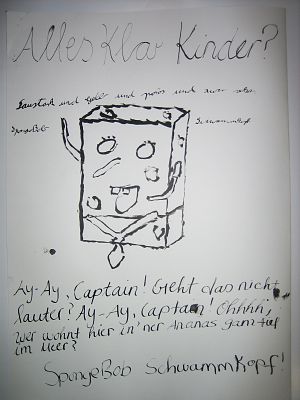 Alles Klar Kinder?
Saustark und gelb und porös und zwar sehr
SpongeBob Schwammkopf
Ay-Ay, Captain! Geht das nicht
lauter? Ay-Ay, Captain! Ohhhh,
wer wohnt hier in 'ner Ananas ganz tief
im Meer?
SpongeBob SchwammKopf!